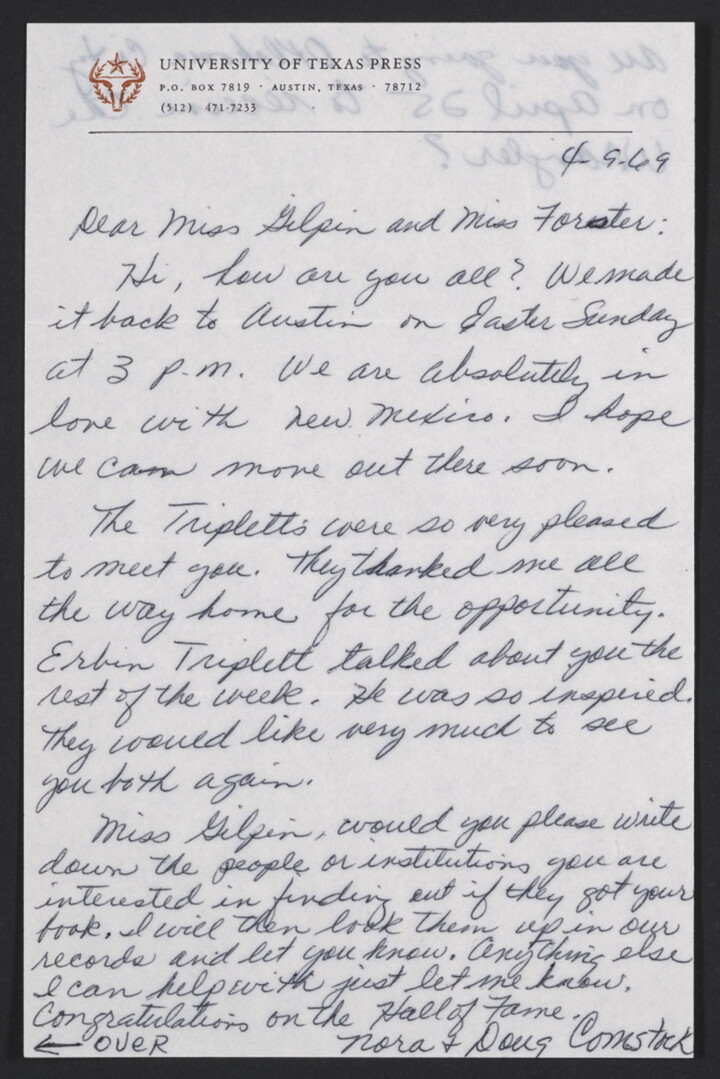 UNIVERSITY OF TEXAS PRESS
P.O. BOX 7819 · AUSTIN, TEXAS · 78712
(512) 471-7233
4-9-69
Dear Miss Gilpin and Miss Forster:
Hi, how are you all? We made
it back to Austin on Easter Sunday
at 3 p.m. We are absolutely in
love with New Mexico. I hope
we can move out there soon.
The Tripletts were so very pleased
to meet you. They thanked me all
the way home for the opportunity.
Erbin Triplett talked about you the
rest of the week. He was so inspired.
They would like very much to see
you both again.
Miss Gilpin, would you please write
down the people or institutions you are
interested in finding out if they got your
book. I will then look them up in our
records and let you know. Anything else
I can help with just let me know.
Congratulations on the Hall of Fame.
← OVER Nora & Doug Comstock